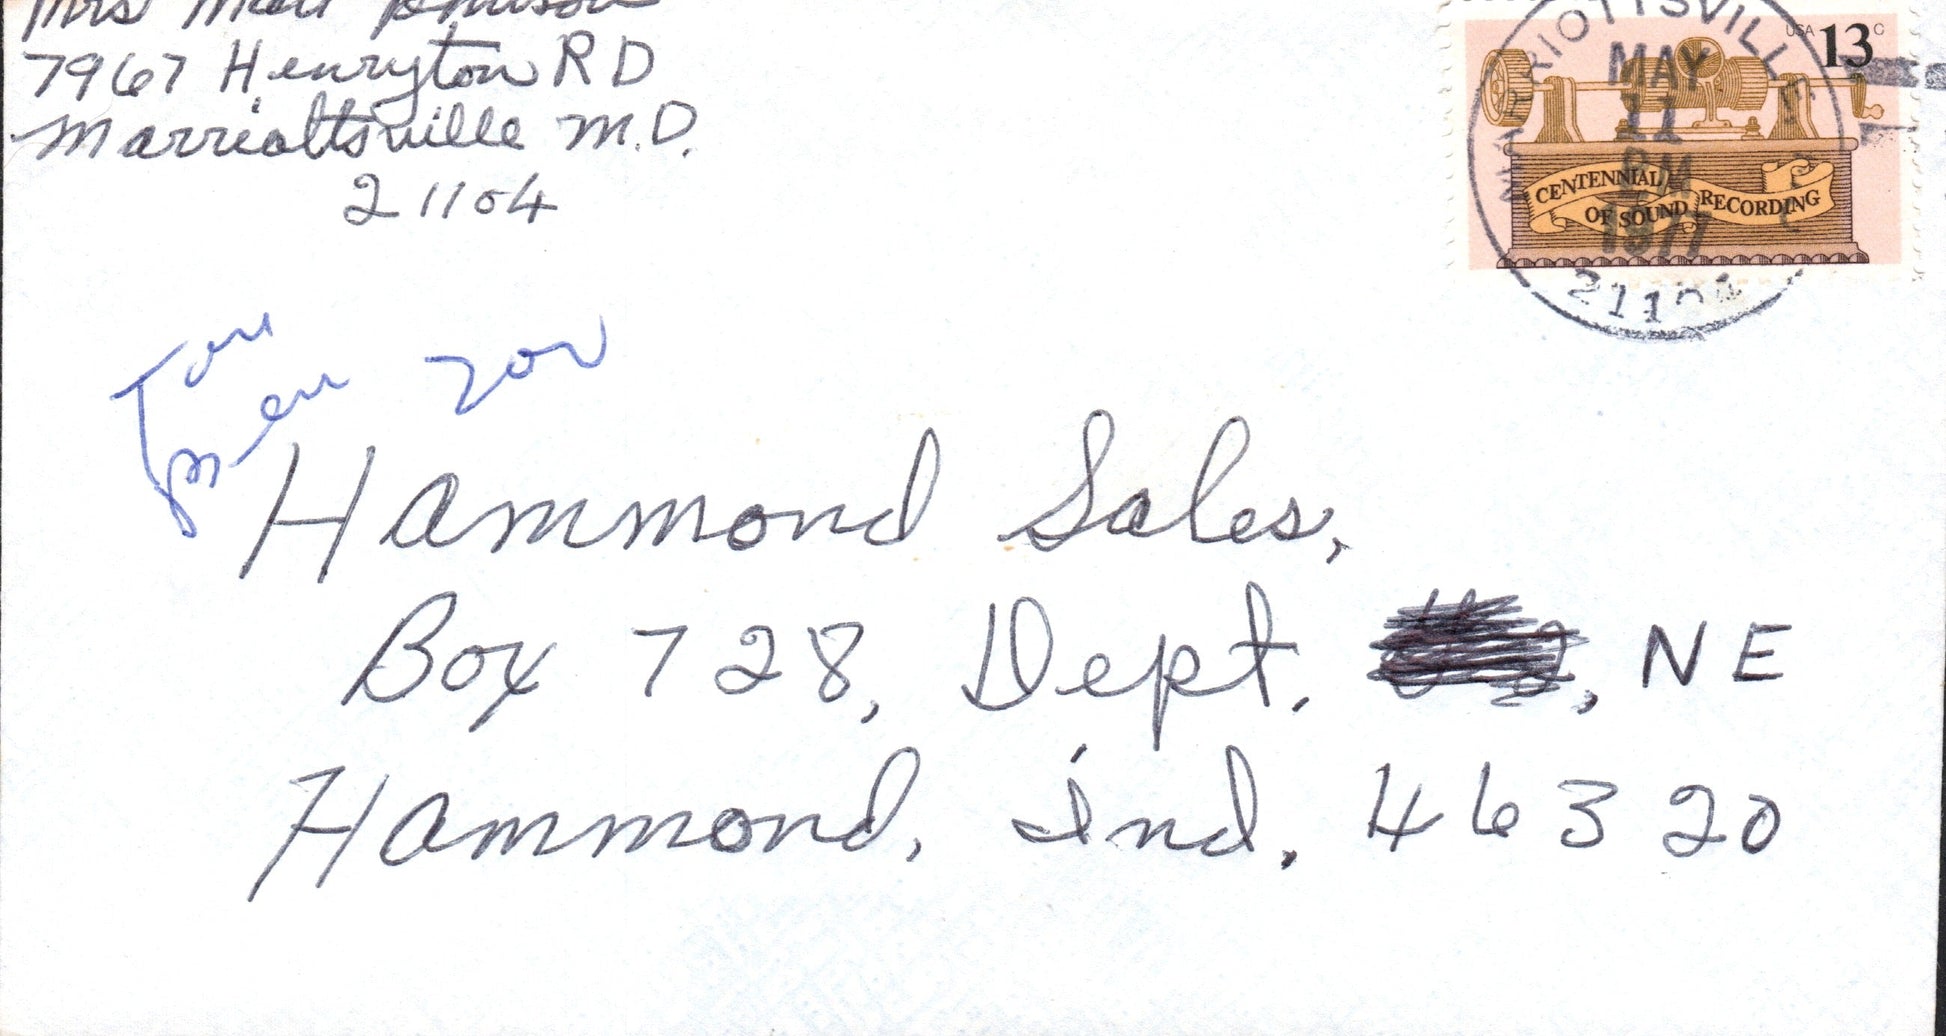 Mrs
7967 Henryton RD
Marriottsville M.D.
21104
MARRIOTTSVILLE
MAY
11
PM
1977
21104
USA 13c
CENTENNIAL
OF SOUND RECORDING
Hammond Sales,
Box 728, Dept. , NE
Hammond, Ind. 46320